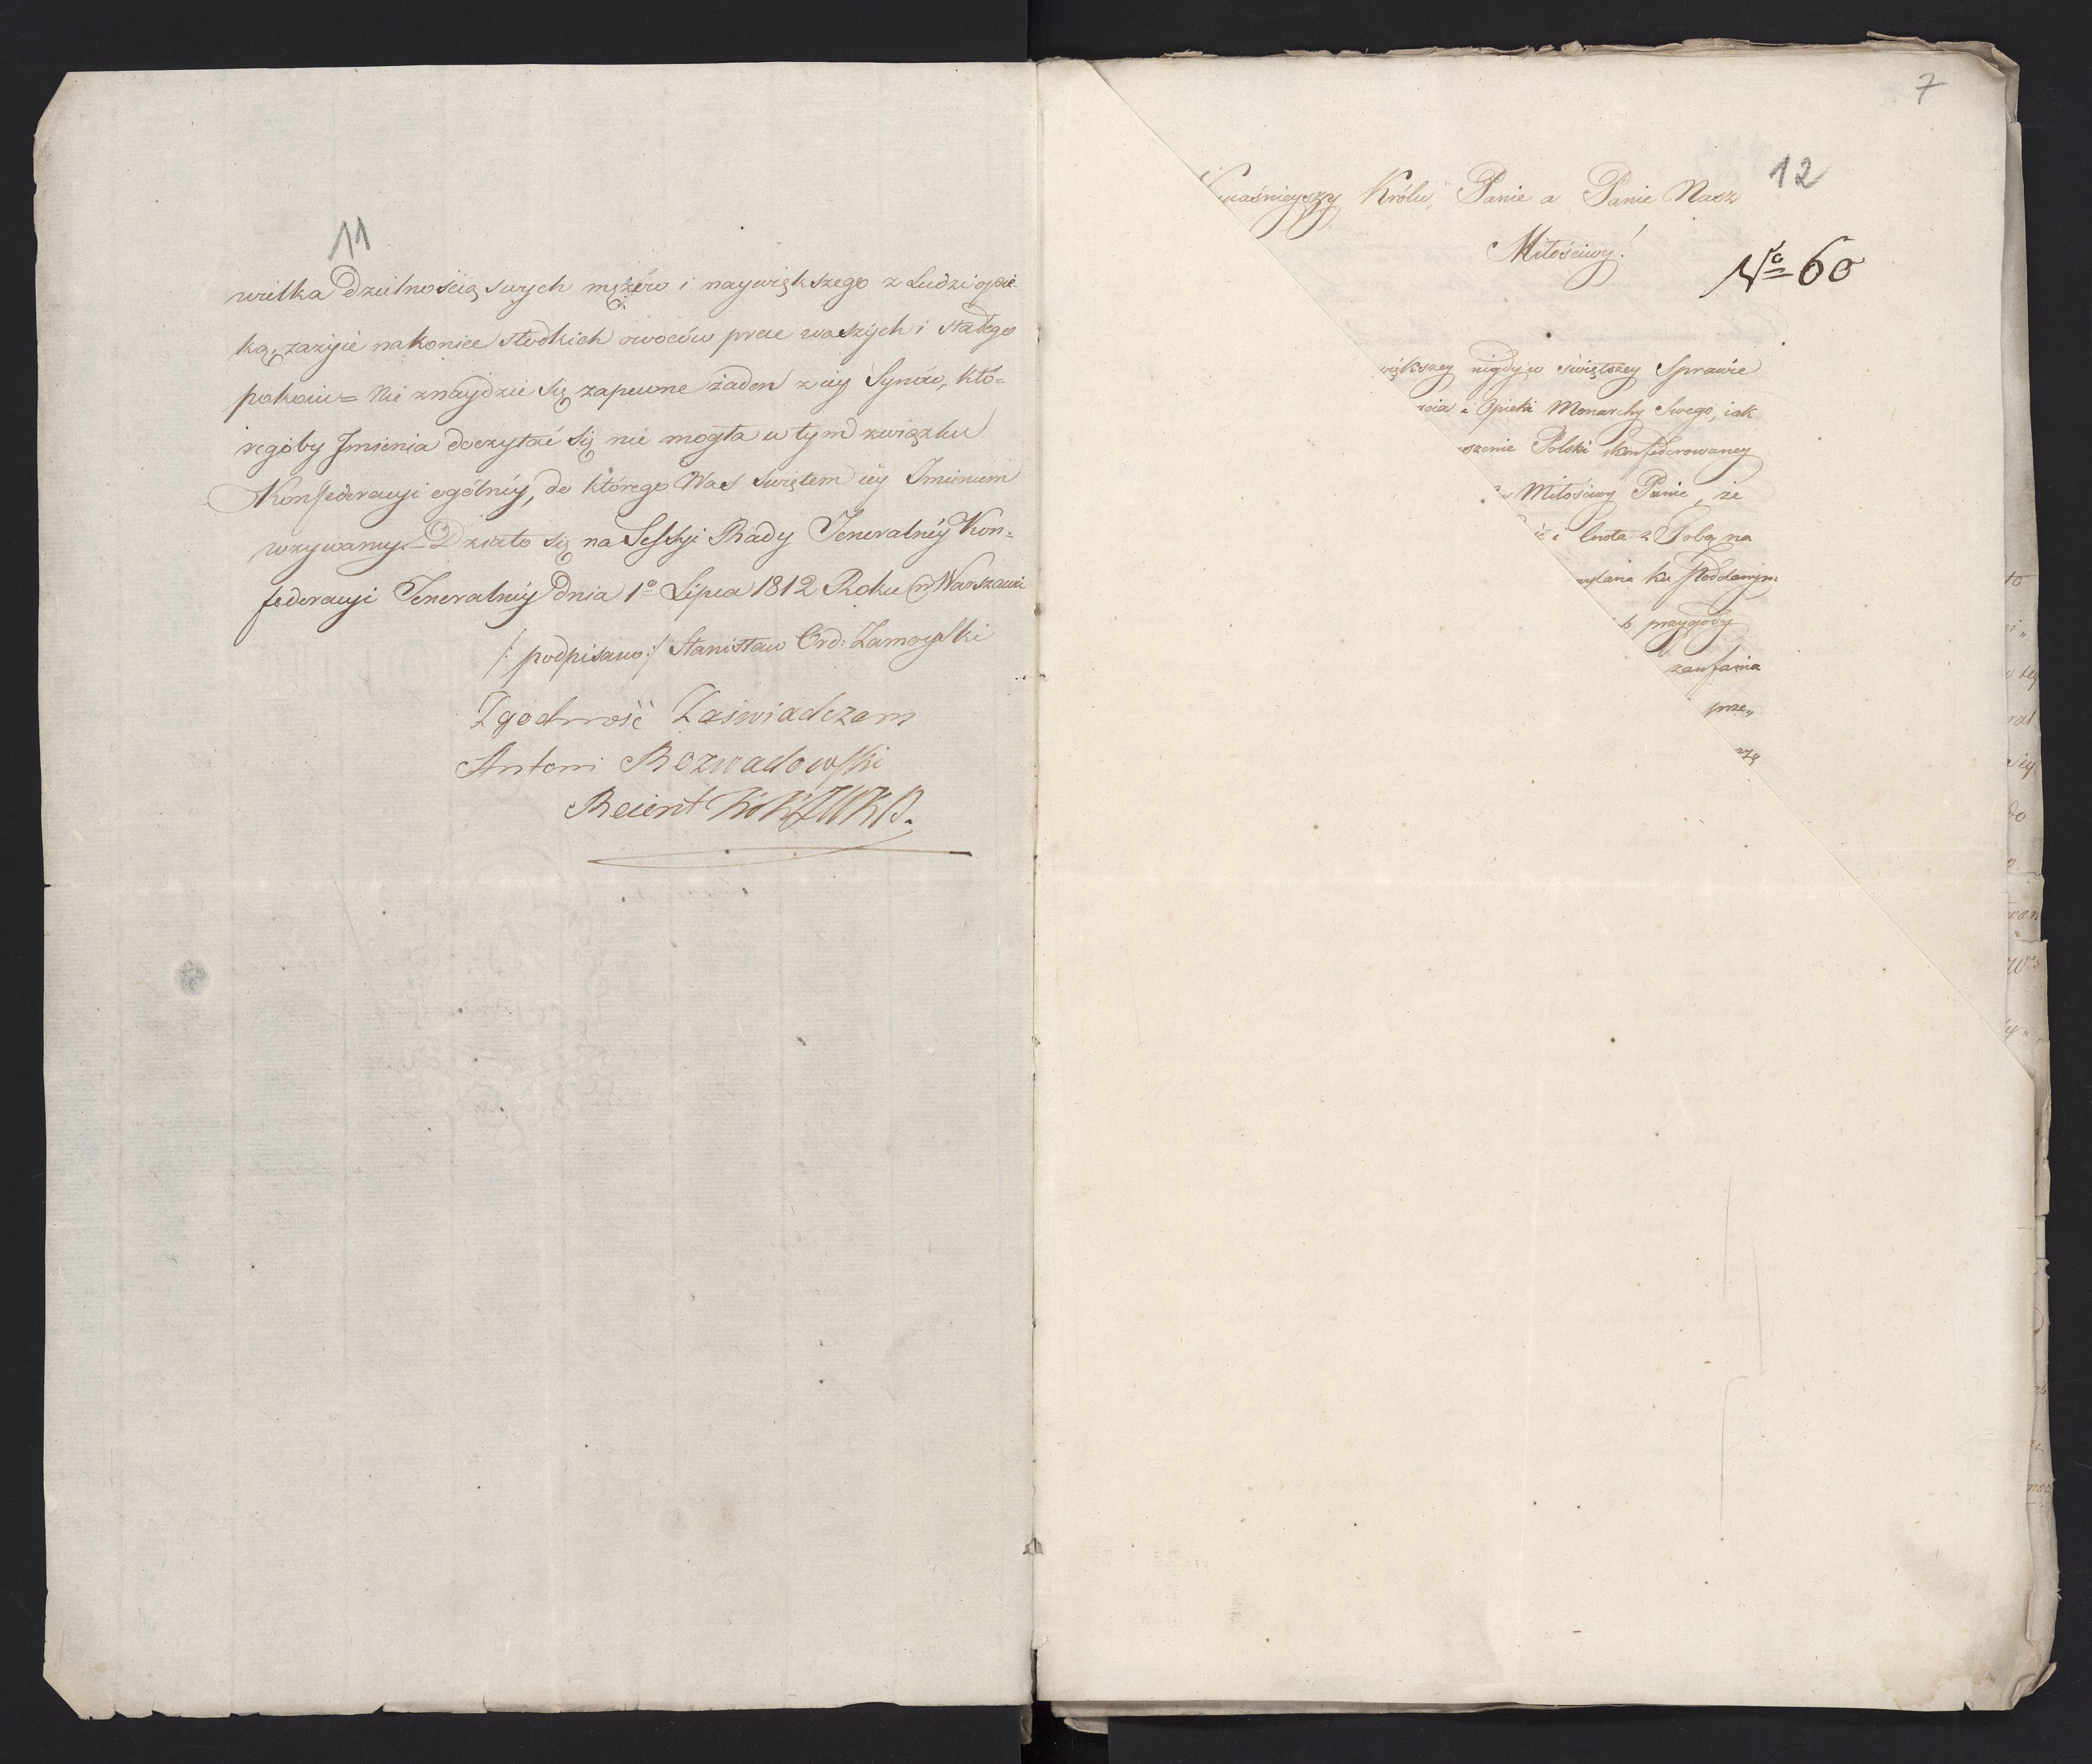 11
wielka dzielnością swych mężów i naywiększego z Ludzi opie-
ką, zażyie nakoniec słodkich owoców prac waszych i stałego
pokoiu = Nie znaydzie się zapewne żaden z iey Synów, któ=
regoby Jmienia doczytać się nie mogła w tym związku
Konfederacyi ogólnéy, do którego Was świętem iéy Jmieniem
wzywamy. – Działo się na Sessyi Rady Jeneralnéy Kon=
federacyi Jeneralnéy dnia 1o Lipca 1812 Roku w Warszawie
/: podpisano :/ Stanisław Ord: Zamoyski
Zgodność Zaświadczam
Antoni Rozwadowski
Reient
7
12
iaśnieyszy Królu, Panie a Panie Nasz
Miłościwy!
No 60
iększey nigdy w świętszey Sprawie
rcia i Opieki Monarchy Swego, iak
szenie Polski skonfederowaney
Miłościwy Panie, że
i Cnota z Tobą na
ylana ku Poddanym
przygody
zaufania
prze„